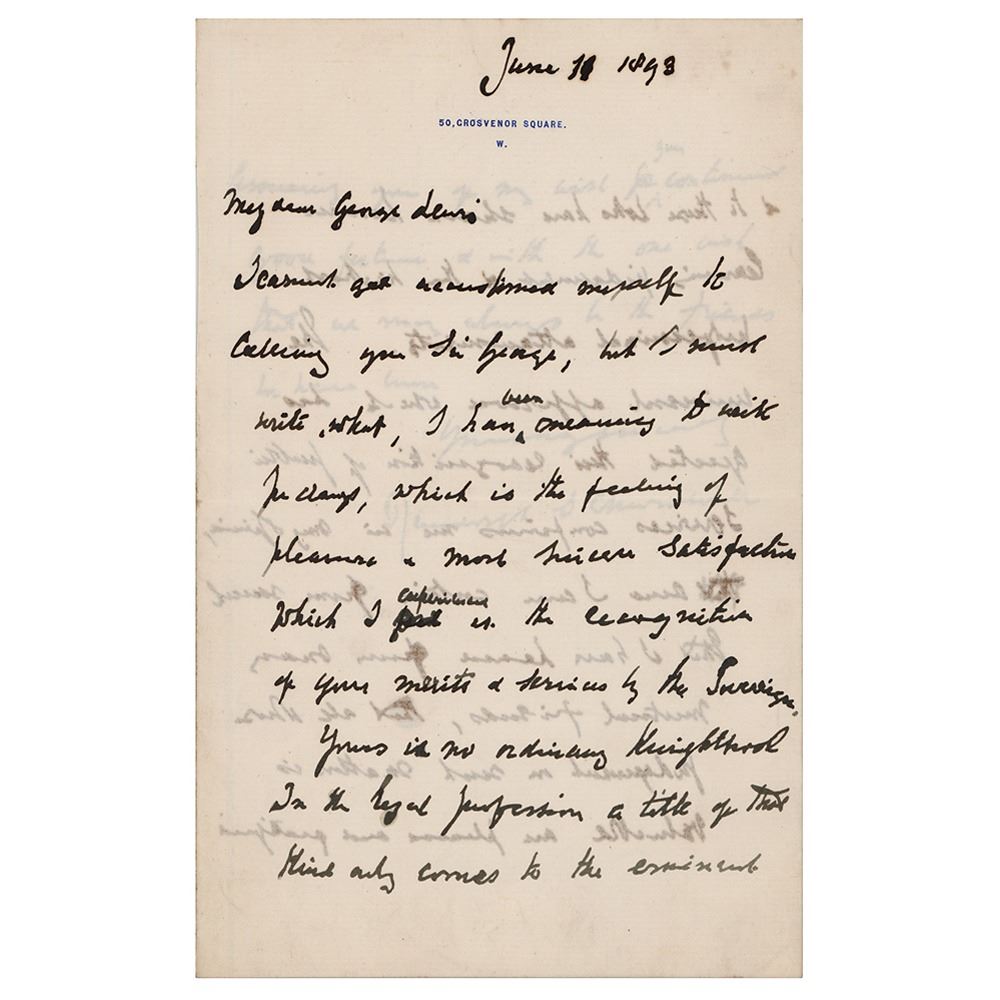 June 11 1893
50, GROSVENOR SQUARE.
W.
My dear George Lewis
I cannot get accustomed myself to
calling you Sir George, but I must
write, what, I have been meaning to write
for days, which is the feeling of
pleasure & most sincere satisfaction
which I experienced in the recognition
of your merits & services by the Sovereign.
Yours is no ordinary Knighthood
In the legal profession a title of that
kind only comes to the eminent